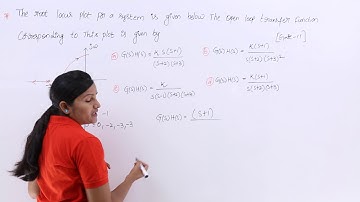 The root locus plot for a system is given below The open loop transfer function
corresponding to this plot is given by
[Gate-11]
jω
a G(s)H(s) = K S(S+1) / (S+2)(S+3)
b G(s)H(s) = K(S+1) / S(S+2)(S+3)²
c G(s)H(s) = K / S(S-1)(S+2)(S+3)
d G(s)H(s) = K(S+1) / S(S+2)(S+3)
-1
0, -2, -3, -3
G(s)H(s) = (S+1)